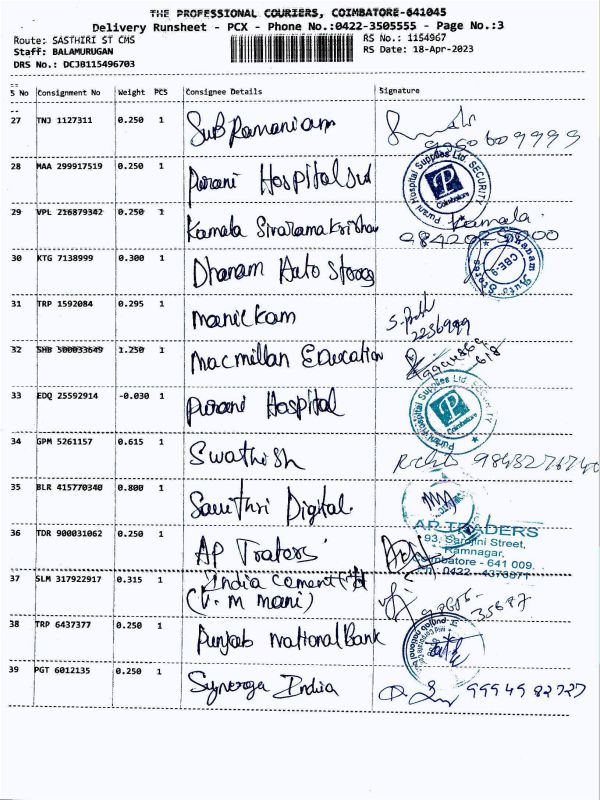 THE PROFESSIONAL COURIERS, COIMBATORE-641045
Delivery Runsheet - PCX - Phone No.:0422-3505555 - Page No.:3
Route: SASTHIRI ST CMS RS No.: 1154967
Staff: BALAMURUGAN RS Date: 18-Apr-2023
DRS No.: DCJB115496703
S No Consignment No Weight PCS Consignee Details Signature
27 TNJ 1127311 0.250 1 SubRamaniam
09999
28 MAA 299917519 0.250 1 Purani Hospital
Purani Hospital Supplies Ltd. SECURITY
Coimbatore
29 VPL 216879342 0.250 1 Kamala Sivaramakrishan Kamala
30 KTG 7138999 0.300 1 Dhanam Auto Stores
Dhanam Auto Stores
CBE-9
31 TRP 1592084 0.295 1 manickam
32 SHB 500033649 1.250 1 macmillan Education
33 EDQ 25592914 -0.030 1 Purani Hospital
Purani Hospital Supplies Ltd. SECURITY
Coimbatore
34 GPM 5261157 0.615 1 Swathish
35 BLR 415770340 0.800 1 Savithri Digital
36 TDR 900031062 0.250 1 AP Traders
AP TRADERS
93, Sarojini Street,
Ramnagar,
Coimbatore - 641 009.
37 SLM 317922917 0.315 1 India Cement Ltd
(V. M mani)
38 TRP 6437377 0.250 1 Punjab National Bank
39 PGT 6012135 0.250 1 Synerga India 9994982727